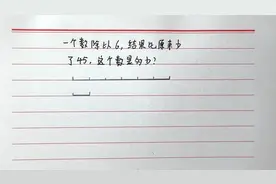 一个数除以6，结果比原来少
了45，这个数是多少？